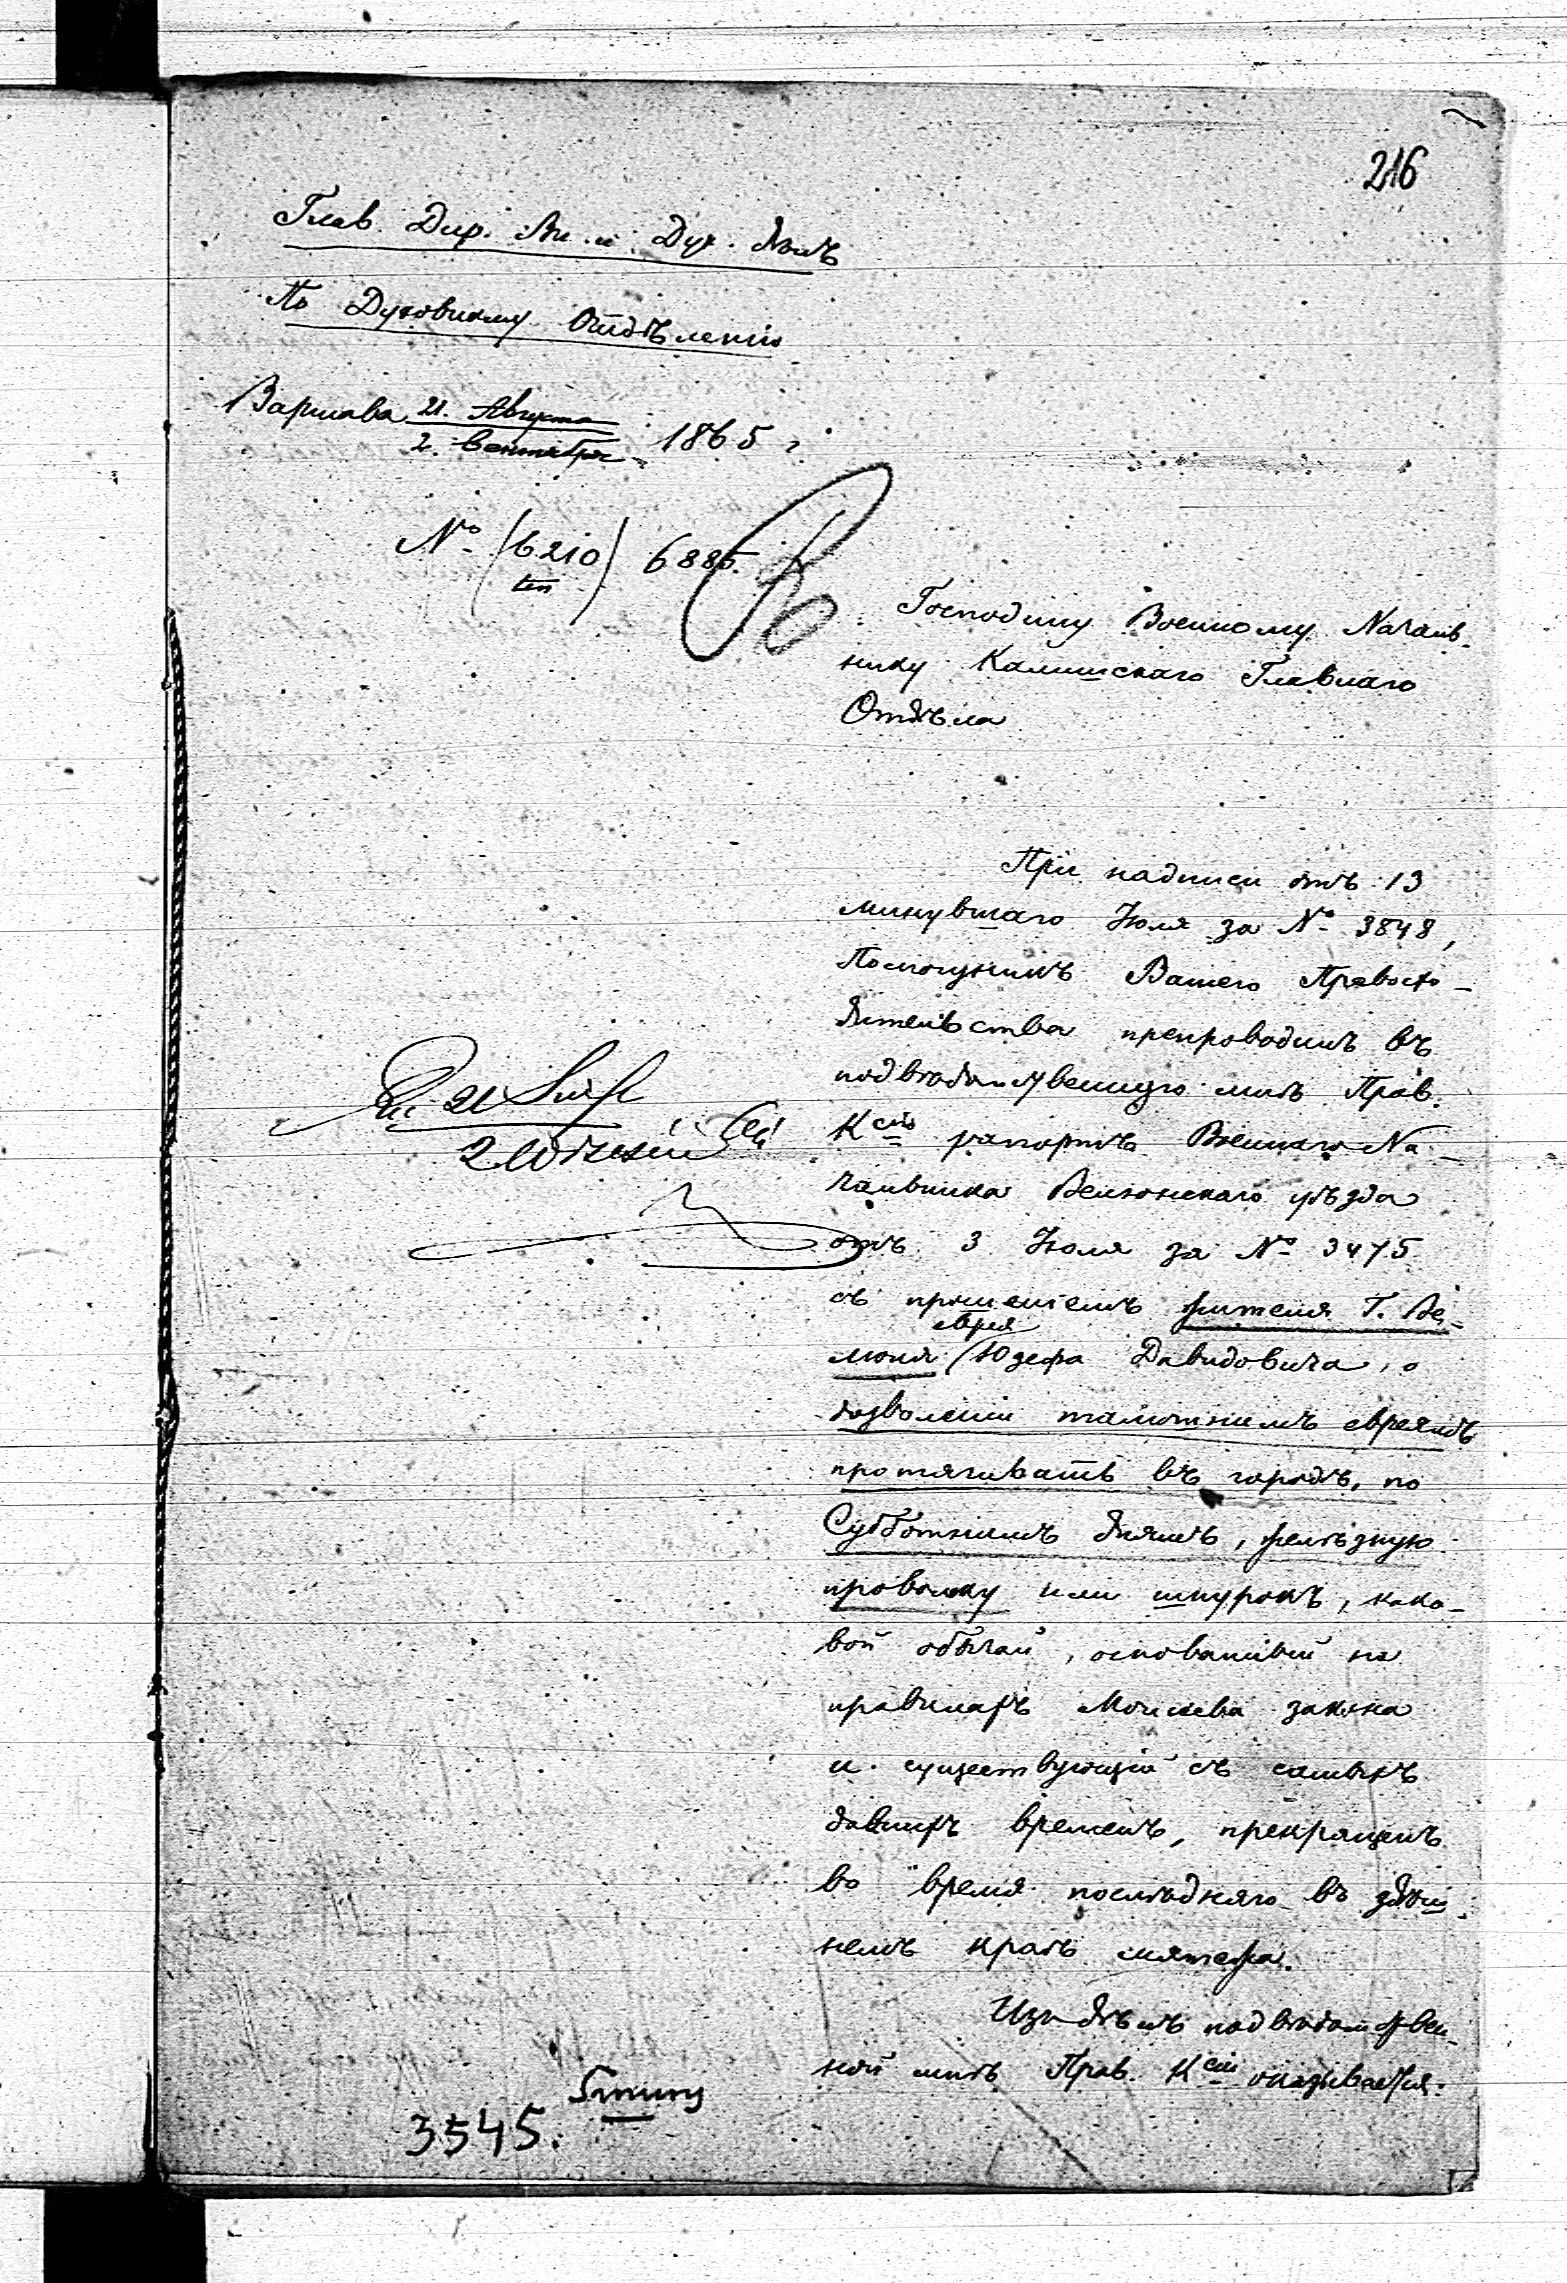 216
Глав. Дир. Вн. и Дух. Дѣлъ
По Духовному Отдѣленію
Варшава 21. Августа
2. Сентября 1865 г.
№ (6210) 6885.
Господину Военному Началь-
нику Калишскаго Главнаго
Отдѣла
При надписи отъ 13
минувшаго Іюля за № 3848,
Помощникъ Вашего Превосхо-
дительства препроводилъ въ
подвѣдомственную мнѣ Прав.
Ксію рапортъ Военнаго На-
чальника Велюнскаго уѣзда
отъ 3 Іюля за № 3475
съ прошеніемъ жителя Г. Ве-
люня еврея Юзефа Давидовича, о
дозволеніи тамошнимъ евреямъ
протягивать въ городѣ, по
Субботнимъ днямъ, желѣзную
проволоку или шнурокъ, како-
вой обычай, основанный на
правилахъ Моисеева закона
и существующій съ самыхъ
давнихъ временъ, прекращенъ
во время послѣдняго въ здѣш-
немъ краѣ мятежа.
Изъ дѣлъ подвѣдомствен-
ной мнѣ Прав. Ксіи оказывается:
3545.